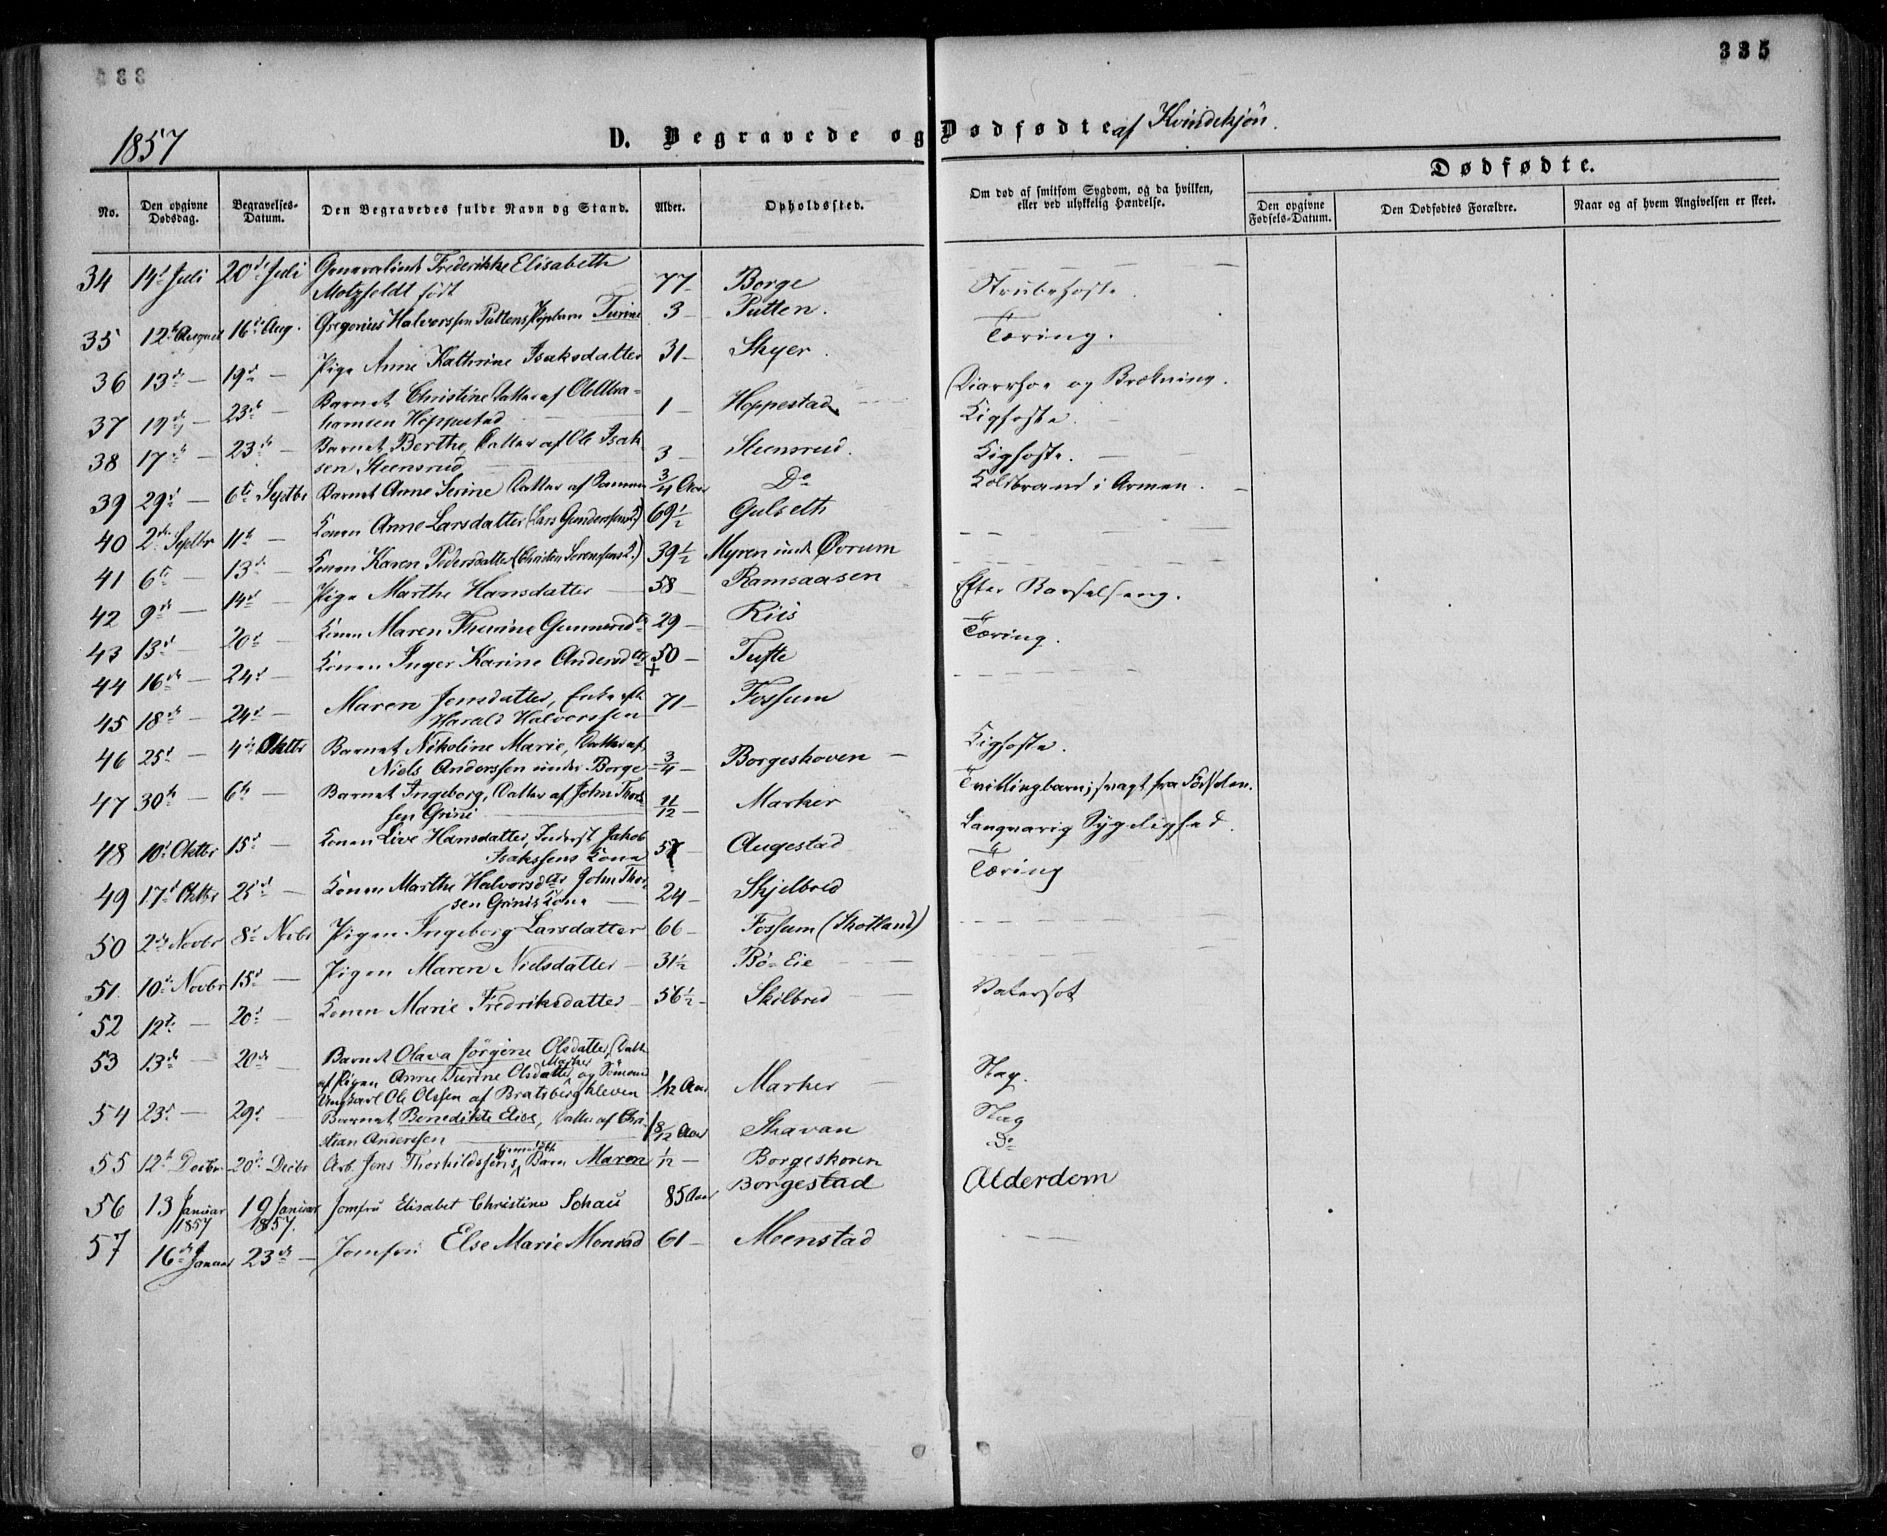 335
1857
D. Begravede og Dødfødte af Kvindekjön.
No.
Den opgivne Dødsdag.
Begravelses-Datum.
Den Begravedes fulde Navn og Stand.
Alder.
Opholdssted.
Om død af smitsom Sygdom, og da hvilken, eller ved ulykkelig Hændelse.
Dødfødte.
Den opgivne Fødsels-Datum.
Den Dødfødtes Forældre.
Naar og af hvem Angivelsen er skeet.
34 14d Juli 20d Juli Frederikke Elisabeth
Motzfeldt født 77 Borge
35 12t August 16d Aug. Gregorius Halvorssen Puttens Turine 3 Putten. Strubehoste.
36 13d 19d Pige Anne Kathrine Isaksdatter 31 Skyer Tæring.
37 19d 23d Barnet Christine Datter af
Hoppestad 1 Hoppestad Diarrhoe og Brækning.
38 17d 23d Barnet Berthe, Datter af Ole Isak-
sen Steensrud 3 Steensrud. Kighoste.
Kighoste.
39 29d 6te Septbr Barnet Anne Serine Datter af Samme 3/4 Aar Do Koldbrand i Armen.
40 2den Septbr 11te Konen Anne Larsdatter (Lars Gundersens K.) 69 1/2 Gulseth
41 6te 13de Konen Karen Pedersdatter (Christen Sørensens K.) 39 1/2 Myren under Øvrum
42 9de 14de Pige Marthe Hansdatter 58 Ramsaasen
43 13d 20d Konen Maren Therine Gunnersdtr 29 Riis Efter Barselseng.
44 16de 24d Konen Inger Karine Andersdtr 50 Tufte Tæring.
45 18de 24d Maren Jensdatter, Enke eft.
Harald Halvorssen 71 Fossum
46 25d 4de Oktbr Barnet Nikoline Marie, Datter af
Niels Anderssen under Borge 3/4 Borgeskoven Kighoste.
47 30te 6te Barnet Ingeborg, Datter af John Thor-
sen Grini 11/12 Marker Tvillingbarn; svagt fra Fødselen.
48 10d Oktbr 15d Konen Live Hansdatter, Inderst Jakob
Isakssens Kone 57 Augestad Langvarig Sygelighed.
49 17d Oktbr 25d Konen Marthe Halvorsdtr John Thor-
sen Grinis Kone 24 Skjelbred Tæring
50 2den Novbr 8d Novbr Pigen Ingeborg Larsdatter 66 Fossum (Skotland)
51 10d Novbr 15d Pigen Maren Nielsdatter 31 1/2 Bö-Eie
52 12te 20d Konen Marie Fredriksdatter 56 1/2 Skilbred Vatersot
53 13de 20de Barnet Olava Jörgine Olsdatter, Datt.
af Pigen Anne Turine Olsdatter Marker og
Ungkarl Ole Olssen af Bratsbergkleven 1/12 Aar Marker Slag.
54 23d 29d Barnet Benedikte Elise, Datter af Chri-
stian Anderssen 8/12 Aar Skavan Slag
55 12te Decbr 20de Decbr Arb. Jens Thorkildssens Barn Maren 1/2 Borgeskoven Do
56 13 Januar 1857 19 Januar 1857. Jomfru Elisabet Christine Schau 85 Aar Borgestad Alderdom
57 16de Januar 23de Jomfru Else Marie Monrad 61 Meenstad